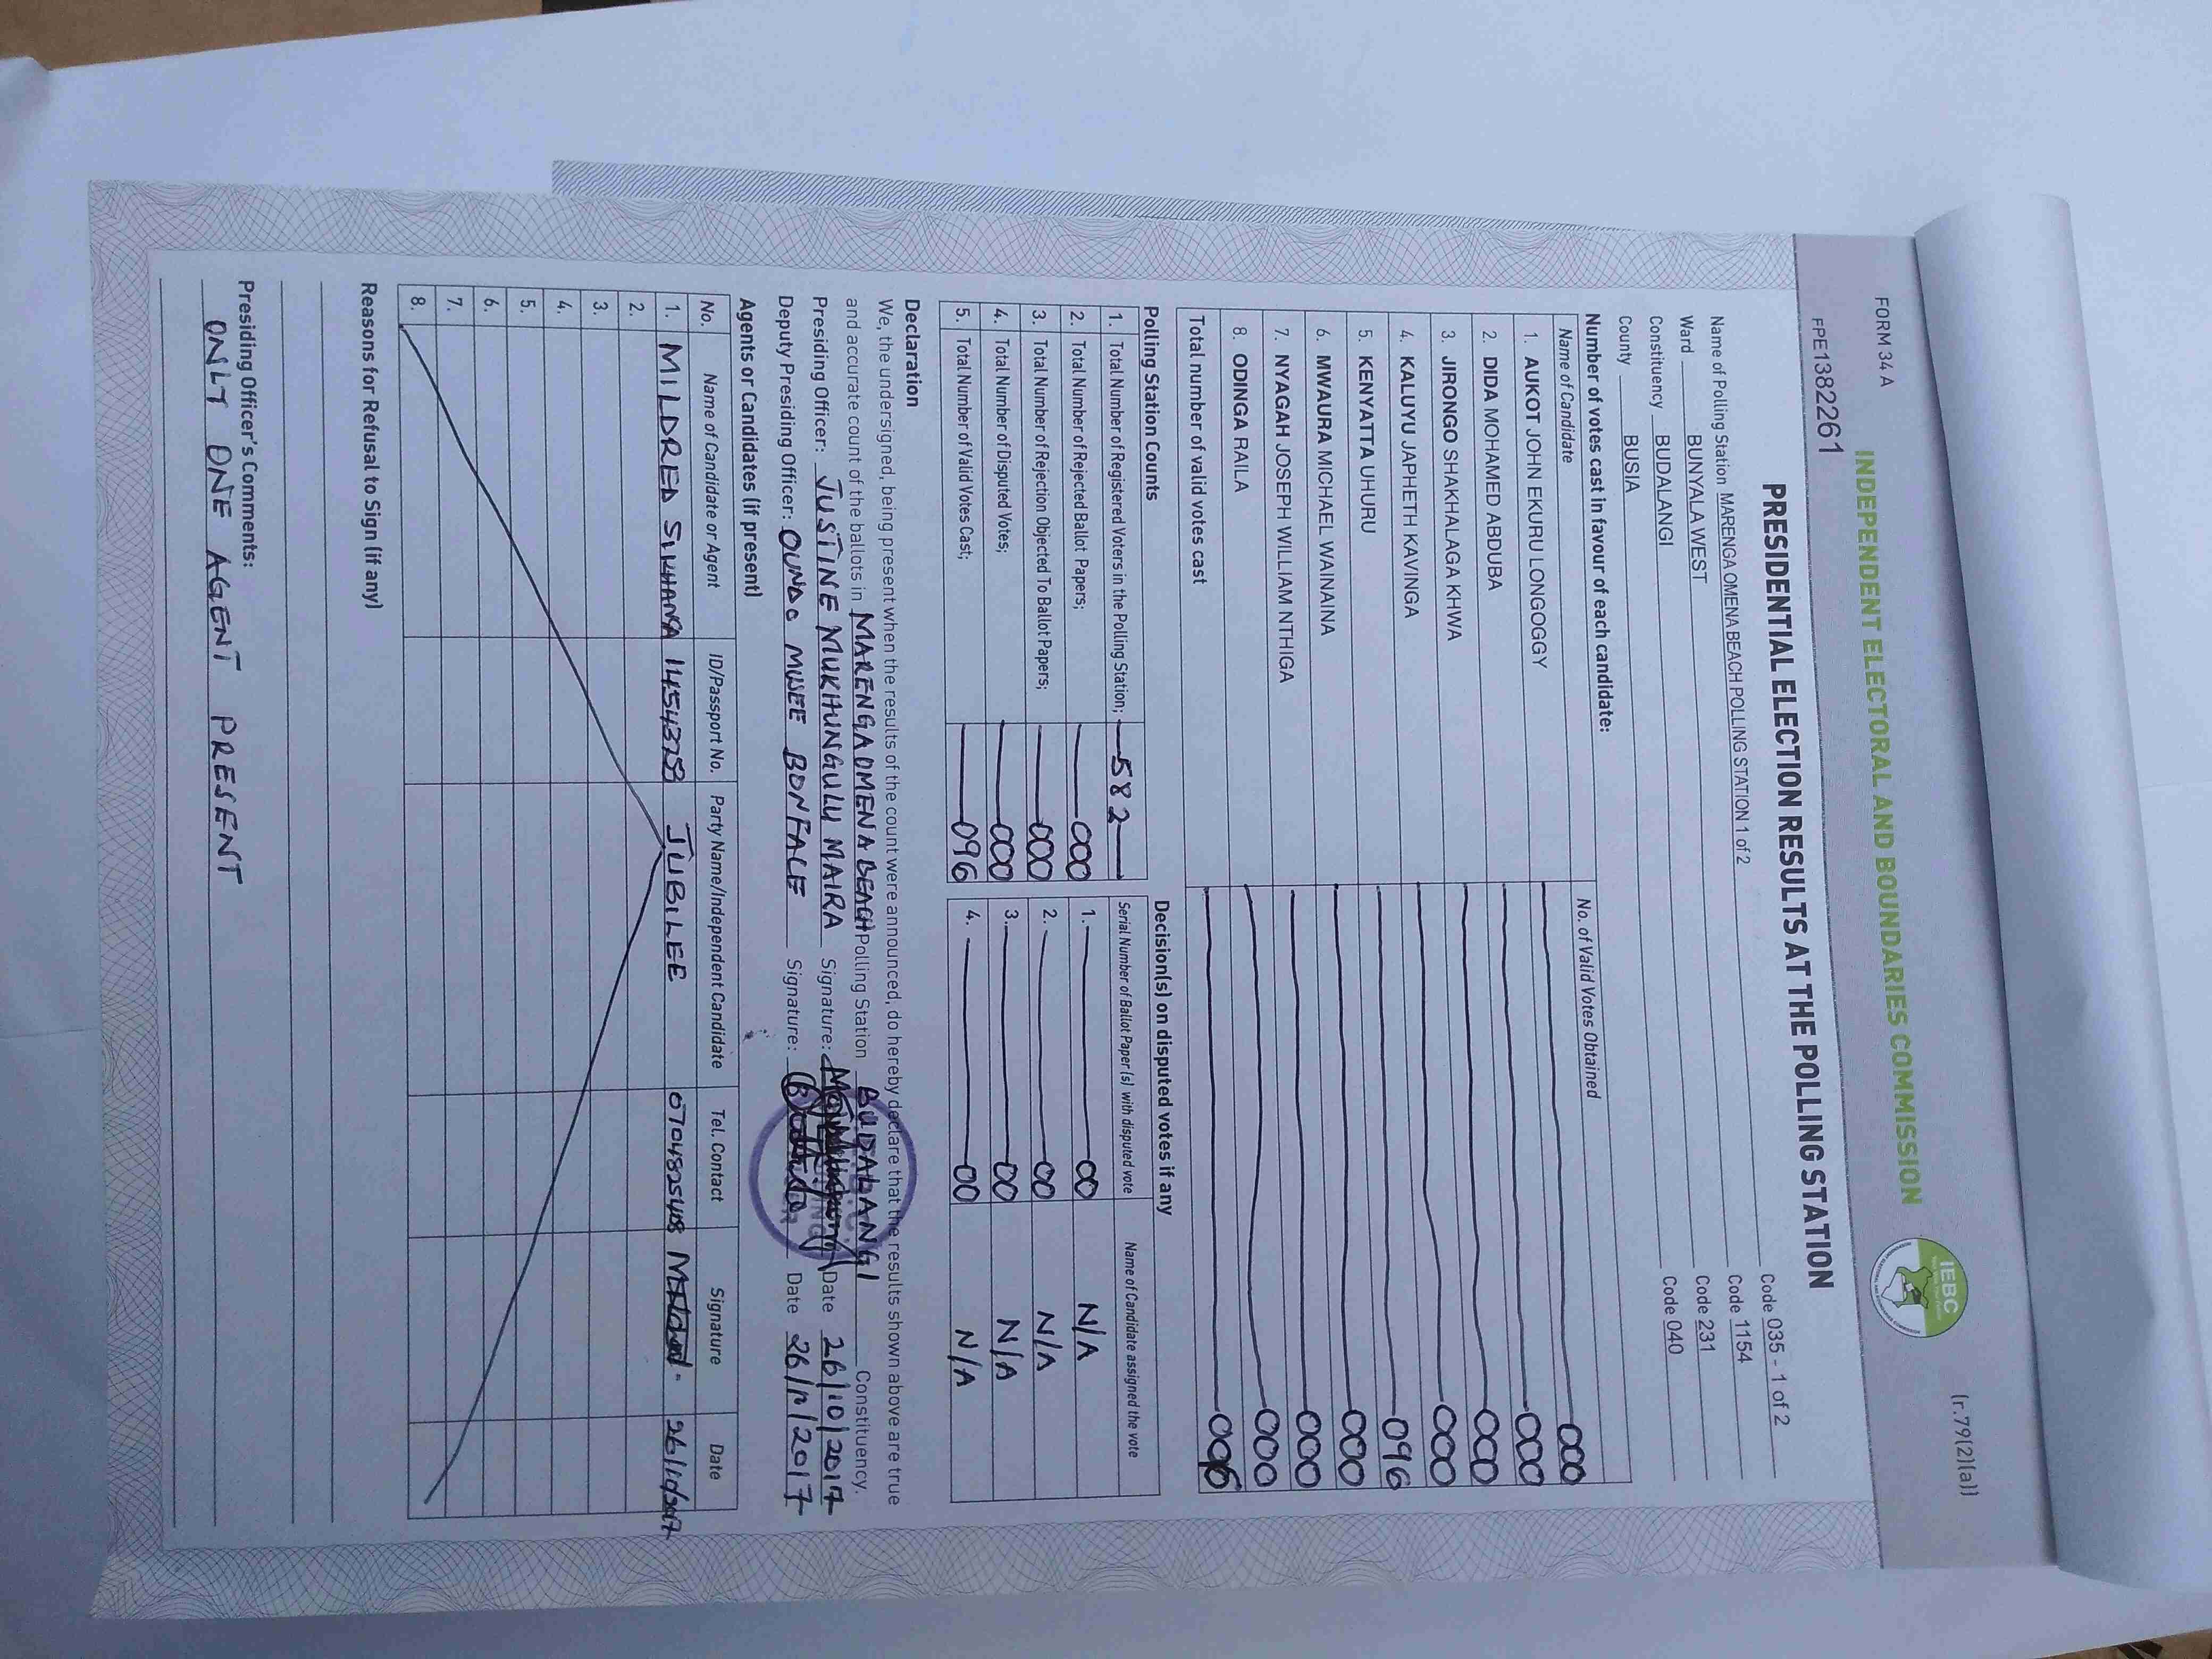 FORM 34 A
(r.79(2)(a))
INDEPENDENT ELECTORAL AND BOUNDARIES COMMISSION
IEBC
FPE1382261
PRESIDENTIAL ELECTION RESULTS AT THE POLLING STATION
Name of Polling Station MARENGA OMENA BEACH POLLING STATION 1 of 2 Code 035 - 1 of 2
Ward BUNYALA WEST Code 1154
Constituency BUDALANGI Code 231
County BUSIA Code 040
Number of votes cast in favour of each candidate:
Name of Candidate No. of Valid Votes Obtained
1. AUKOT JOHN EKURU LONGOGGY 000
2. DIDA MOHAMED ABDUBA 000
3. JIRONGO SHAKHALAGA KHWA 000
4. KALUYU JAPHETH KAVINGA 000
5. KENYATTA UHURU 096
6. MWAURA MICHAEL WAINAINA 000
7. NYAGAH JOSEPH WILLIAM NTHIGA 000
8. ODINGA RAILA 000
Total number of valid votes cast
Polling Station Counts
1. Total Number of Registered Voters in the Polling Station; 582
2. Total Number of Rejected Ballot Papers; 000
3. Total Number of Rejection Objected To Ballot Papers; 000
4. Total Number of Disputed Votes; 000
5. Total Number of Valid Votes Cast; 096
Decision(s) on disputed votes if any
Serial Number of Ballot Paper (s) with disputed vote Name of Candidate assigned the vote
1. 00 N/A
2. 00 N/A
3. 00 N/A
4. 00 N/A
Declaration
We, the undersigned, being present when the results of the count were announced, do hereby declare that the results shown above are true
and accurate count of the ballots in MARENGA OMENA BEACH Polling Station BUDALANGI Constituency.
Presiding Officer: JUSTINE MUKHUNGULU MAIRA Signature: Date 26/10/2017
Deputy Presiding Officer: OUNDO MUSEE BONFACE Signature: Date 26/10/2017
Agents or Candidates (if present)
No. Name of Candidate or Agent ID/Passport No. Party Name/Independent Candidate Tel. Contact Signature Date
1. MILDRED JUBILEE 0704825408 26/10/2017
2.
3.
4.
5.
6.
7.
8.
Reasons for Refusal to Sign (if any)
Presiding Officer's Comments:
ONLY ONE AGENT PRESENT